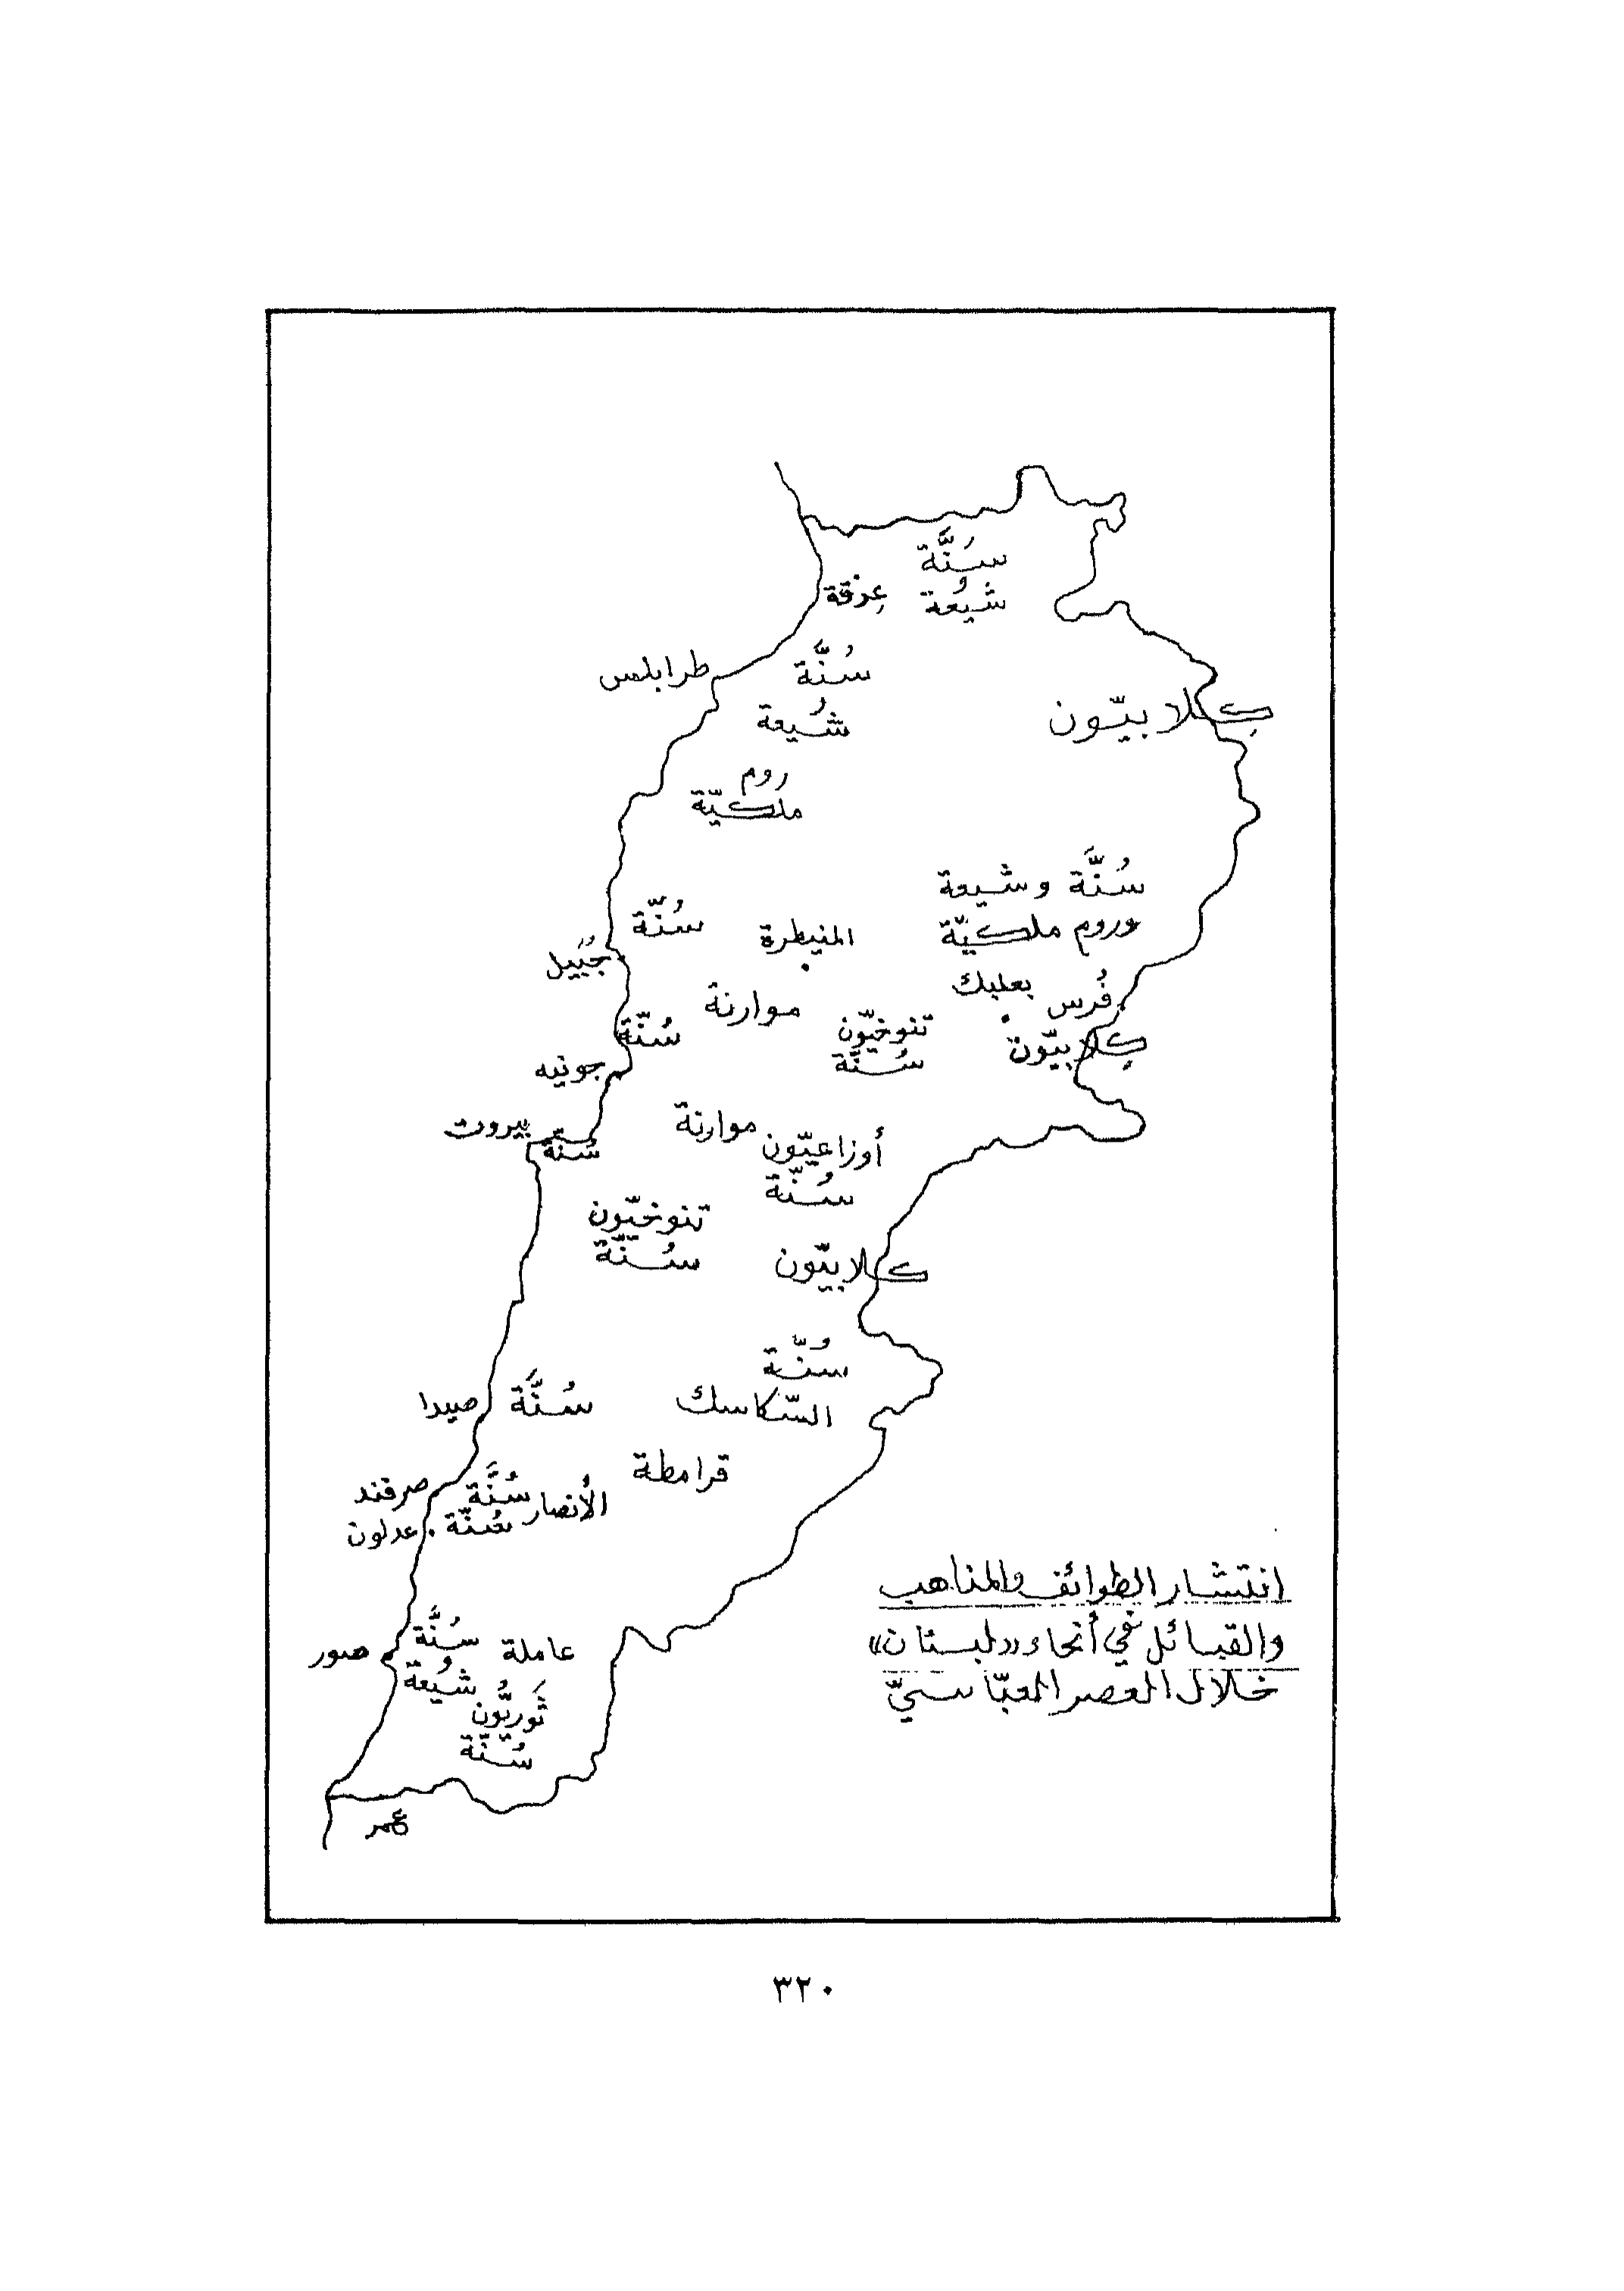 سُنَّة
عرقة شيعة
طرابلس سُنَّة
شيعة
كلابيّون
روم
ملكيّة
سُنَّة وشيعة
وروم ملكيّة
سُنّة
المنيطرة
جبيل
بعلبك
فُرس
موارنة
تنوخيّون
سُنَّة
كلابيّون
سُنّة
جونيه
موارنة
بيروت
سُنّة
أوزاعيّون
سُنّة
تنوخيّون
سُنّة
كلابيّون
سُنّة
السّكاسك
صيدا سُنَّة
قرامطة
صرفند سُنَّة
الأنصار
عدلون سُنّة
صور سُنَّة عاملة
شيعة
ثَوريُّون
سُنّة
انتشار الطوائف والمذاهب
والقبائل في أنحاء «لبنان»
خلال العصر العبّاسيّ
٣٢٠